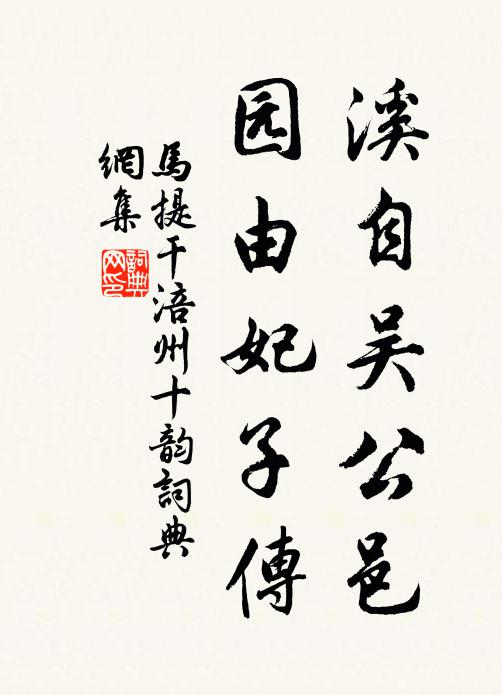 溪自吴公邑
园由妃子傳
馬提干涪州十韵詞典
網集
詞典
网印